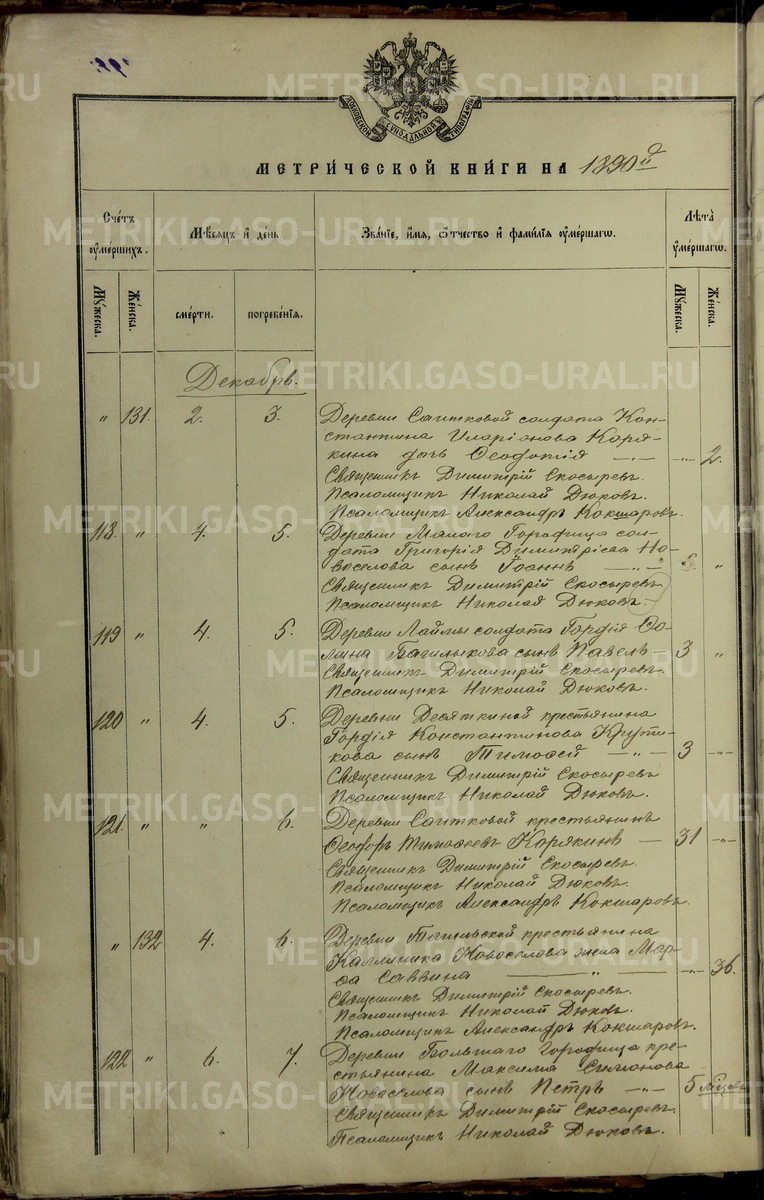 МОСКОВСКОЙ СѴНОДАЛЬНОЙ ТИПОГРАФІИ
МЕТРИ́ЧЕСКОЙ КНИ́ГИ НА 1890й
Сче́тъ ᲂу҆ме́ршихъ.
Мѣ́сяцъ и҆ де́нь
Зва́ніе, и҆́мя, ѻ҆́тчество и҆ фами́лія ᲂу҆ме́ршагѡ.
Лѣта̀ ᲂу҆ме́ршагѡ.
Мꙋ́жеска.
Же́нска.
сме́рти.
погребе́нія.
Мꙋ́жеска.
Же́нска.
Декабрь.
" 131. 2. 3. Деревни Саитковой солдата Кон-
стантина Иларіонова Каря-
кина дочь Ѳеодотія —"— —"— 2.
Священникъ Димитрій Скосыревъ.
Псаломщикъ Николай Дюковъ.
Псаломщикъ Александръ Кокшаровъ.
118. " 4. 5. Деревни Малого Городища сол-
дата Григорія Димитріева Но-
воселова сынъ Іоаннъ —"— "
Священникъ Димитрій Скосыревъ
Псаломщикъ Николай Дюковъ.
119 " 4. 5. Деревни Лаймы солдата Гордія Ѳо-
мина сынъ Павелъ — 3 "
Священникъ Димитрій Скосыревъ.
Псаломщикъ Николай Дюковъ.
120 " 4. 5. Деревни Десяткиной крестьянина
Гордія Константинова Крути-
кова сынъ Тимоѳей —"— 3 —"—
Священникъ Димитрій Скосыревъ
Псаломщикъ Николай Дюковъ.
121. " " 6. Деревни Саитковой крестьянинъ
Ѳеодоръ Тимоѳеевъ Карякинъ — 31 —"—
Священникъ Димитрій Скосыревъ.
Псаломщикъ Николай Дюковъ.
Псаломщикъ Александръ Кокшаровъ.
" 132 4. 6. Деревни крестьянина
Каллиника Новоселова жена Мар-
ѳа Саввина —"— —"— 36.
Священникъ Димитрій Скосыревъ.
Псаломщикъ Николай Дюковъ.
Псаломщикъ Александръ Кокшаровъ.
122 " 6. 7. Деревни Большаго Городища кре-
стьянина Максима Симонова
Новоселова сынъ Петръ —"— 5 мѣсяц.
Священникъ Димитрій Скосыревъ.
Псаломщикъ Николай Дюковъ.
METRIKI.GASO-URAL.RU